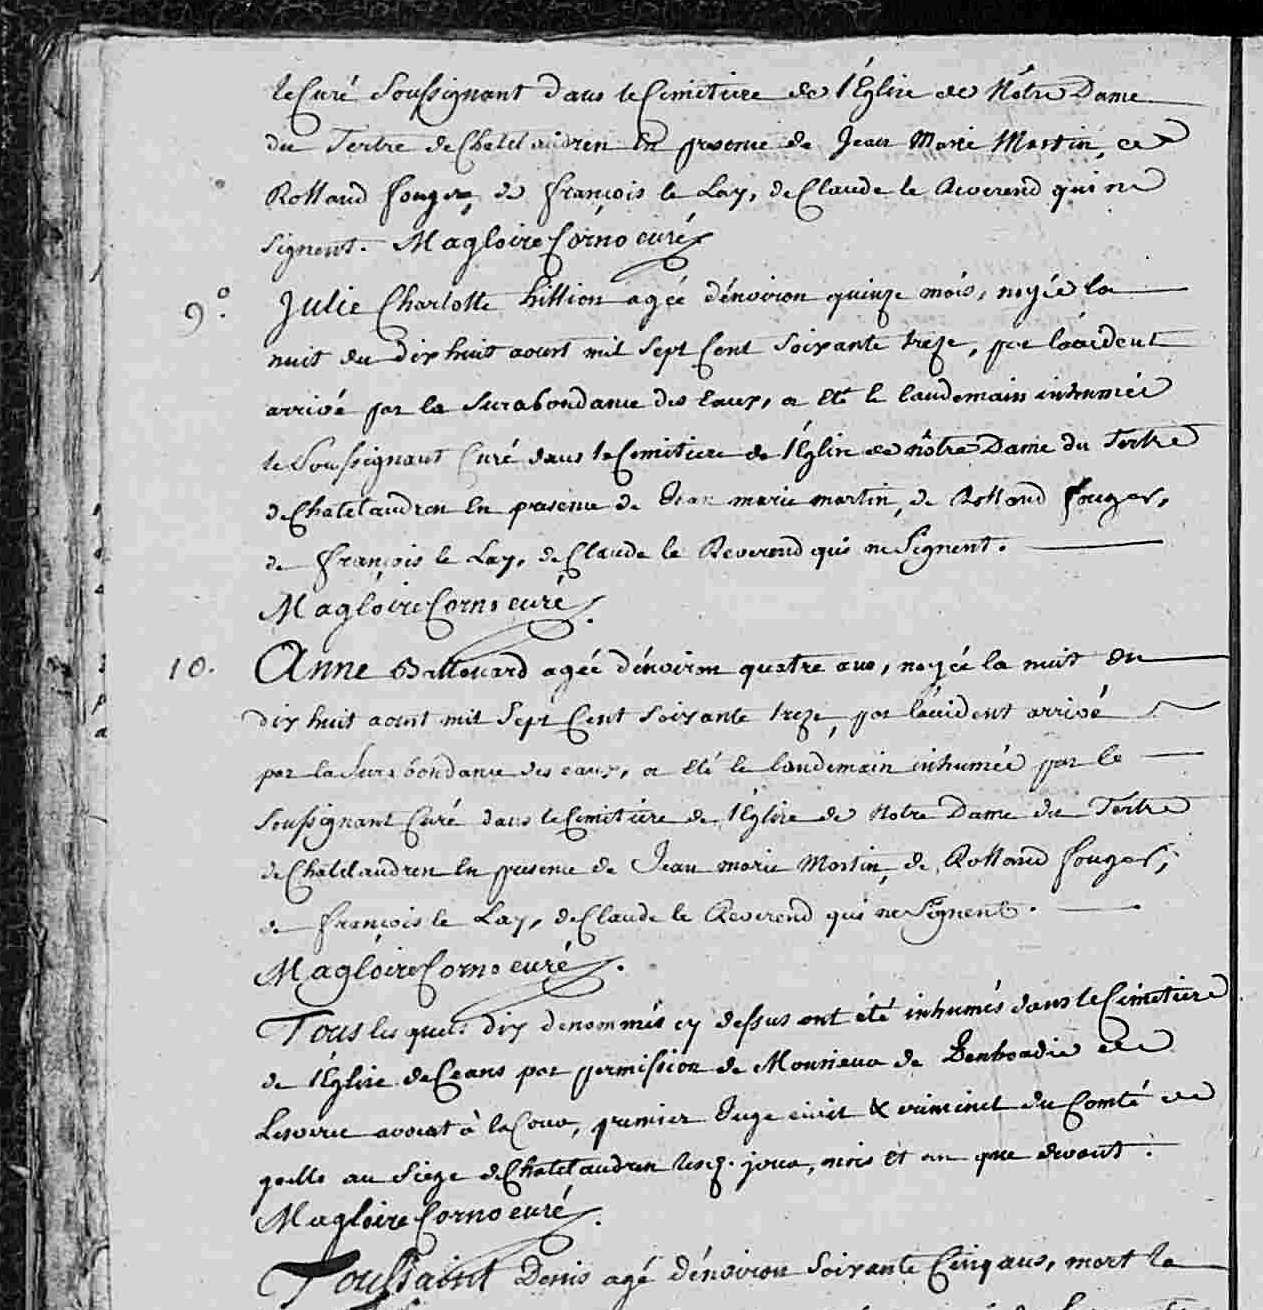 le Curé Soussignant dans le Cimitiere de l'Eglise de Nôtre Dame
du Tertre de Chatelaudren En presence de Jean Marie Martin, de
Rolland fouger, de françois le Lay, de Claude le Reverend qui ne
signent. Magloire Corno curé
9.° Julie Charlotte hillion agée d'énviron quinze mois, noyée la
nuit du dix huit aoust mil Sept Cent Soixante treze, par l'accident
arrivé par la Surabondance des Eaux, a Eté le landemain inhumée
le Soussignant Curé dans le Cimitiere de l'Eglise de nôtre Dame du Tertre
de Chatelaudren En presence de Jean marie martin, de Rolland fouger,
de françois le Lay, de Claude le Reverend qui ne Signent.
Magloire Corno curé.
10. Anne agée d'énviron quatre ans, noyée la nuit du
dix huit aoust mil Sept Cent Soixante treze, par l'accident arrivé
par la Surabondance des eaux, a Eté le landemain inhumée par le
Soussignant Curé dans le Cimitiere de l'Eglise de Notre Dame du Tertre
de Chatelaudren En presence de Jean marie Martin, de Rolland fouger,
de françois le Lay, de Claude le Reverend qui ne Signent.
Magloire Corno curé.
Tous les quels dix denommés cy dessus ont été inhumés dans le Cimetiere
de l'Eglise de Ceans par permission de Monsieur de de
avocat à la Cour, premier Juge civil & criminel du Comté de
goello au Siege de Chatelaudren jour, mois Et an que devant.
Magloire Corno curé.
Toussaint Denis agé d'énviron Soixante Cinq ans, mort le